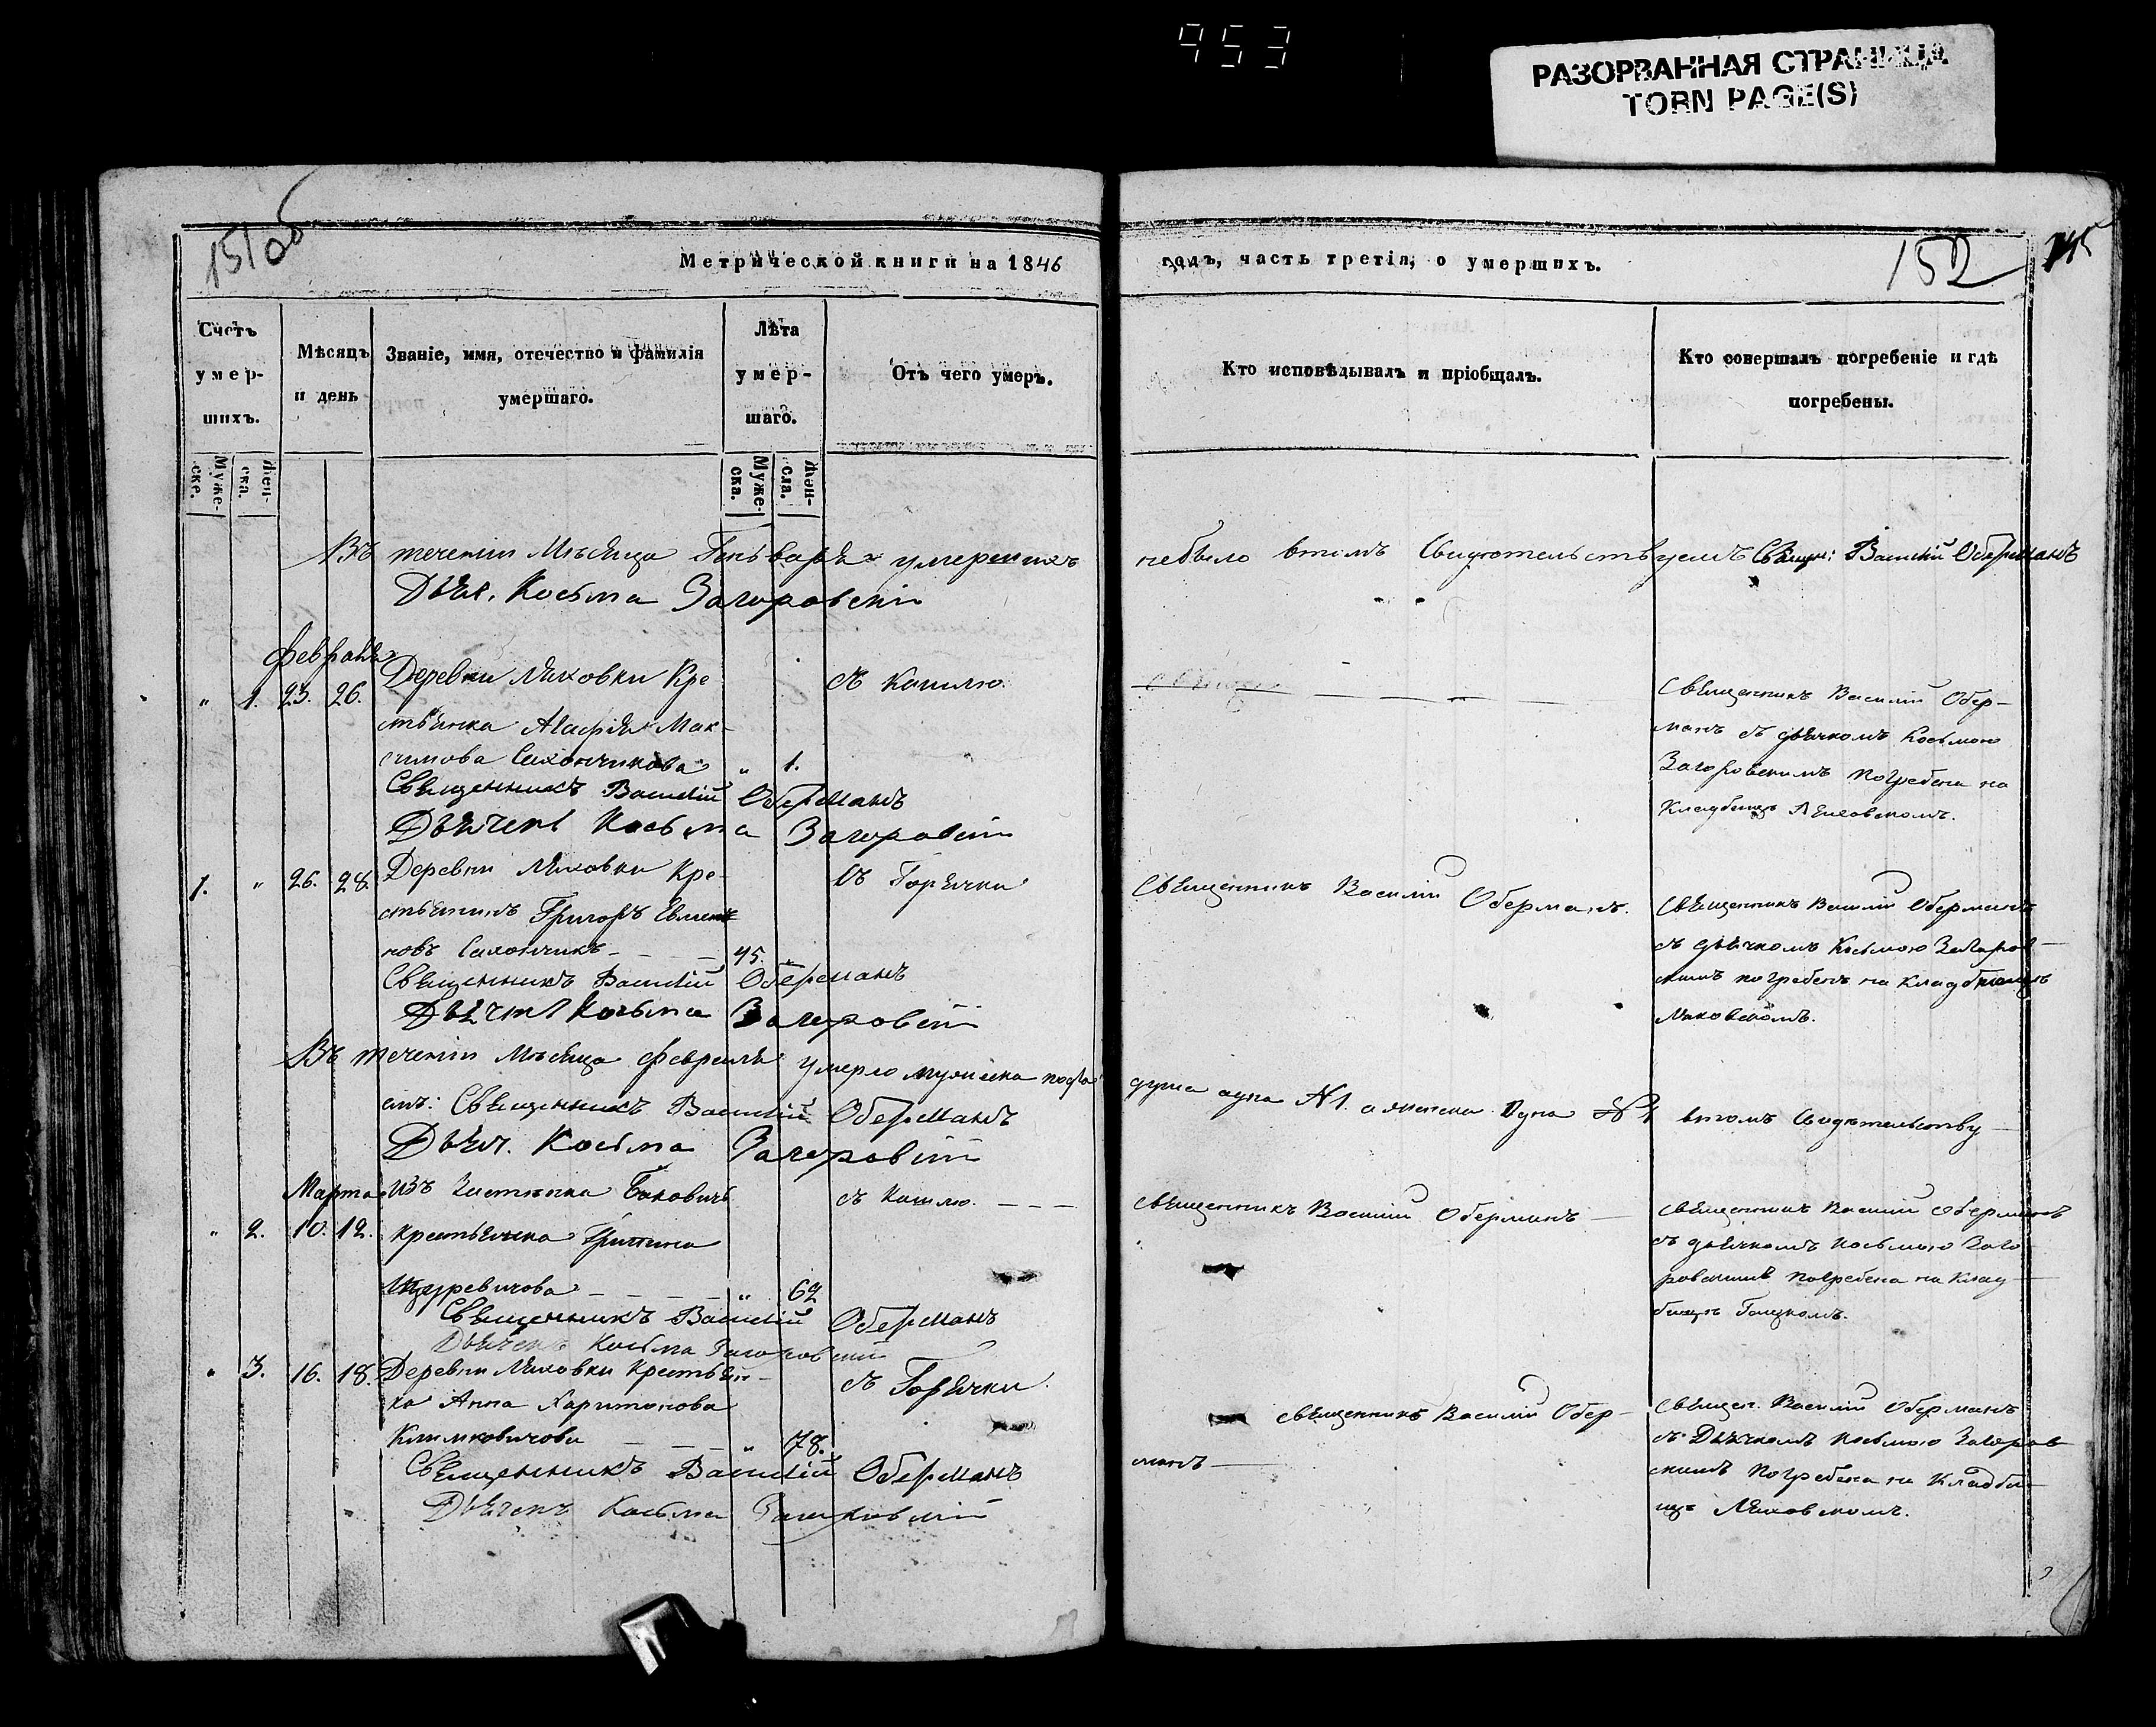 953
РАЗОРВАННАЯ СТРАНИЦА
TORN PAGE(S)
151об
152
Метрической книги на 1846
годъ, часть третія, о умершихъ.
Счетъ умер-шихъ.
Мѣсяцъ и день
Званіе, имя, отечество и фамилія умершаго.
Лѣта умер-шаго.
Отъ чего умеръ.
Кто исповѣдывалъ и пріобщалъ.
Кто совершалъ погребеніе и гдѣ погребены.
Муже-ске.
Жен-ска.
Муже-ска.
Жен-ска.
Въ теченіи Мѣсяца Генваря умершихъ небыло втомъ Свидѣтельствуемъ Священ: Василій Оберманъ
Дьяч. Косьма Загоровскій
Февраля
" 1. 23. 26. Деревни Ляховки Кре-
стьянка Агафія Мак-
симова Сахончикова " 1.
съ Кашлю.
Священникъ Василій Обер-
манъ съ дьячкомъ Косьмою
Загоровскимъ погребена на
Кладбищѣ Ляховскомъ.
Священникъ Василій Оберманъ
Дьячекъ Косьма Загоровскій
1. " 26. 28. Деревни Ляховки Кре-
стьянинъ Григоръ
новъ Сахончикъ 45. "
съ Горячки
Священникъ Василій Оберманъ.
Священникъ Василій Оберманъ
съ дьячкомъ Косьмою Загоров-
скимъ погребенъ на Кладбищѣ
Ляховскомъ.
Священникъ Василій Оберманъ
Дьячекъ Косьма Загоровскій
Въ теченіи Мѣсяца Февраля умерло мужеска пола душа одна №1. а женска одна №1 втомъ Свидѣтельству-
емъ: Священникъ Василій Оберманъ
Дьяч. Косьма Загоровскій
Марта
" 2. 10. 12. Изъ
крестьянка
Щуревичова " 62
съ Кашлю.
Священникъ Василій Оберманъ
Священникъ Василій Оберманъ
съ дьячкомъ Косьмою Заго-
ровскимъ погребена на Клад-
бищѣ
Священникъ Василій Оберманъ
Дьячекъ Косьма Загоровскій
" 3. 16. 18. Деревни Ляховки Крестьян-
ка Анна Харитонова
Климковичова " 78.
съ Горячки.
Священникъ Василій Обер-
манъ
Священ. Василій Оберманъ
съ Дьячкомъ Косьмою Загоров-
скимъ погребена на Кладби-
щѣ Ляховскомъ.
Священникъ Василій Оберманъ
Дьячекъ Косьма Загоровскій